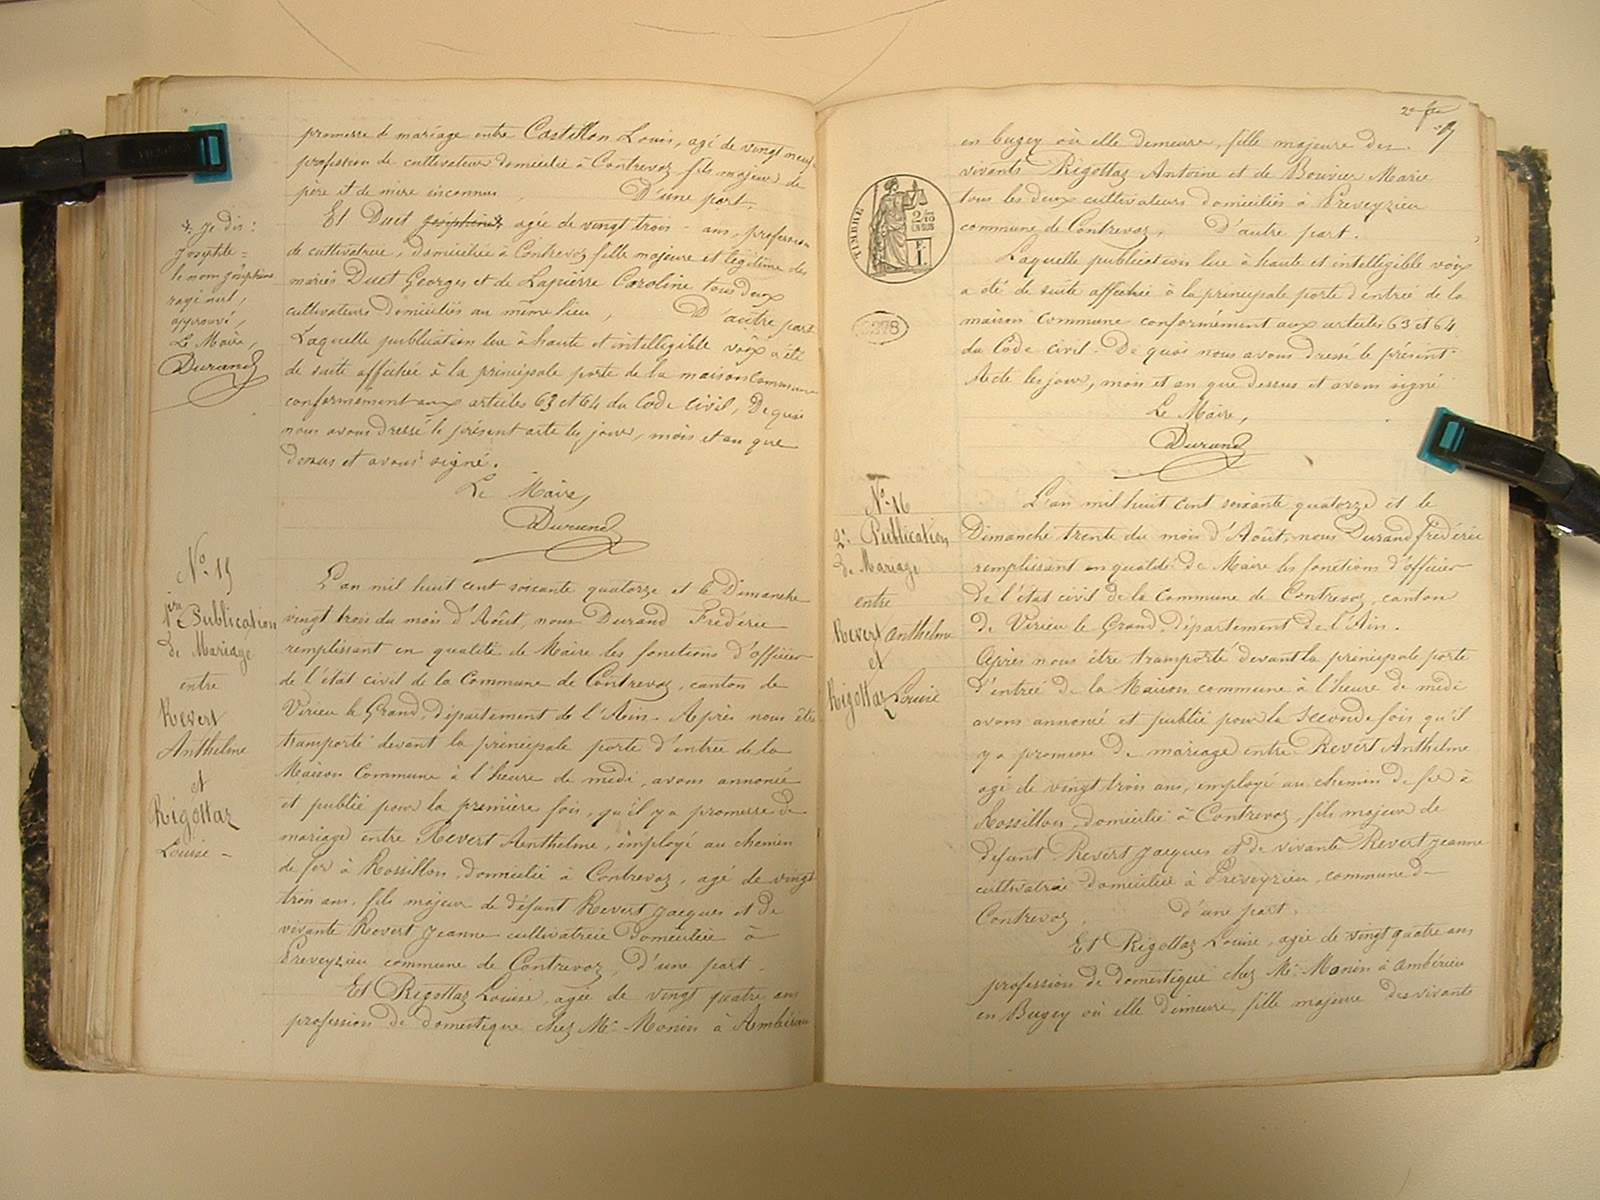 promesse de mariage entre Castillon Louis, agé de vingt neuf
profession de cultivateur domicilié à Contrevoz fils majeur de
père et de mère inconnus D'une part.
Et Duet Joséphine agée de vingt trois - ans, profession
de cultivatrice, domiciliée à Contrevoz fille majeure et légitime des
mariés Duet Georges et de Lapierre Caroline tous deux
cultivateurs domiciliés au même lieu, D'autre part
Laquelle publication lue à haute et intelligible voix a été
de suite affichée à la principale porte de la maison Commune
conformément aux articles 63 et 64 du Code Civil, De quoi
nous avons dressé le présent acte les jour, mois et an que
dessus et avons signé.
Le Maire,
Durand
Je dis:
Josephte =
le nom Joséphine
rayé nul,
approuvé,
Le Maire,
Durand
No. 15
1ère Publication
de Mariage
entre
Revert
Anthelme
et
Rigottaz
Louise -
L'an mil huit cent soixante quatorze et le Dimanche
vingt trois du mois d'Août, nous Durand Frédéric
remplissant en qualité de Maire les fonctions d'officier
de l'état civil de la Commune de Contrevoz, canton de
Virieu le Grand, Département de l'Ain - Après nous être
transporté devant la principale porte d'entrée de la
Maison Commune à l'heure de midi, avons annoncé
et publié pour la première fois, qu'il y a promesse de
mariage entre Revert Anthelme, employé au chemin
de fer à Rossillon, domicilié à Contrevoz, agé de vingt
trois ans, fils majeur de défunt Revert Jacques et de
vivante Revert Jeanne cultivatrice domiciliée à
Preveyzieu commune de Contrevoz, D'une part -
Et Rigottaz Louise, agée de vingt quatre ans
profession de domestique chez Mr Monin à Ambérieu
2e
en bugey où elle demeure, fille majeure des
vivants Rigottaz Antoine et de Bouvier Marie
tous les deux cultivateurs domiciliés à Preveyzieu
commune de Contrevoz, D'autre part.
Laquelle publication lue à haute et intelligible voix
a été de suite affichée à la principale porte d'entrée de la
maison commune conformément aux articles 63 et 64
du Code civil - De quoi nous avons dressé le présent
Acte les jour, mois et an que dessus et avons signé
Le Maire,
Durand
TIMBRE
2/10
EN SUS
1F
No. 16
2e Publication
de Mariage
entre
Revert Anthelme
et
Rigottaz Louise
L'an mil huit cent soixante quatorze et le
Dimanche trente du mois d'Août, nous Durand frédéric
remplissant en qualité de Maire les fonctions d'officier
de l'état civil de la Commune de Contrevoz, canton
de Virieu le Grand, Département de l'Ain.
Après nous être transporté devant la principale porte
d'entrée de la Maison commune à l'heure de midi
avons annoncé et publié pour la seconde fois qu'il
y a promesse de mariage entre Revert Anthelme
agé de vingt trois ans, employé au chemin de fer à
Rossillon, domicilié à Contrevoz, fils majeur de
défunt Revert Jacques et de vivante Revert Jeanne
cultivatrice domiciliée à Preveyzieu, commune de
Contrevoz. d'une part.
Et Rigottaz Louise, agée de vingt quatre ans
profession de domestique chez Mr Monin à Ambérieu
en Bugey où elle demeure, fille majeure des vivants